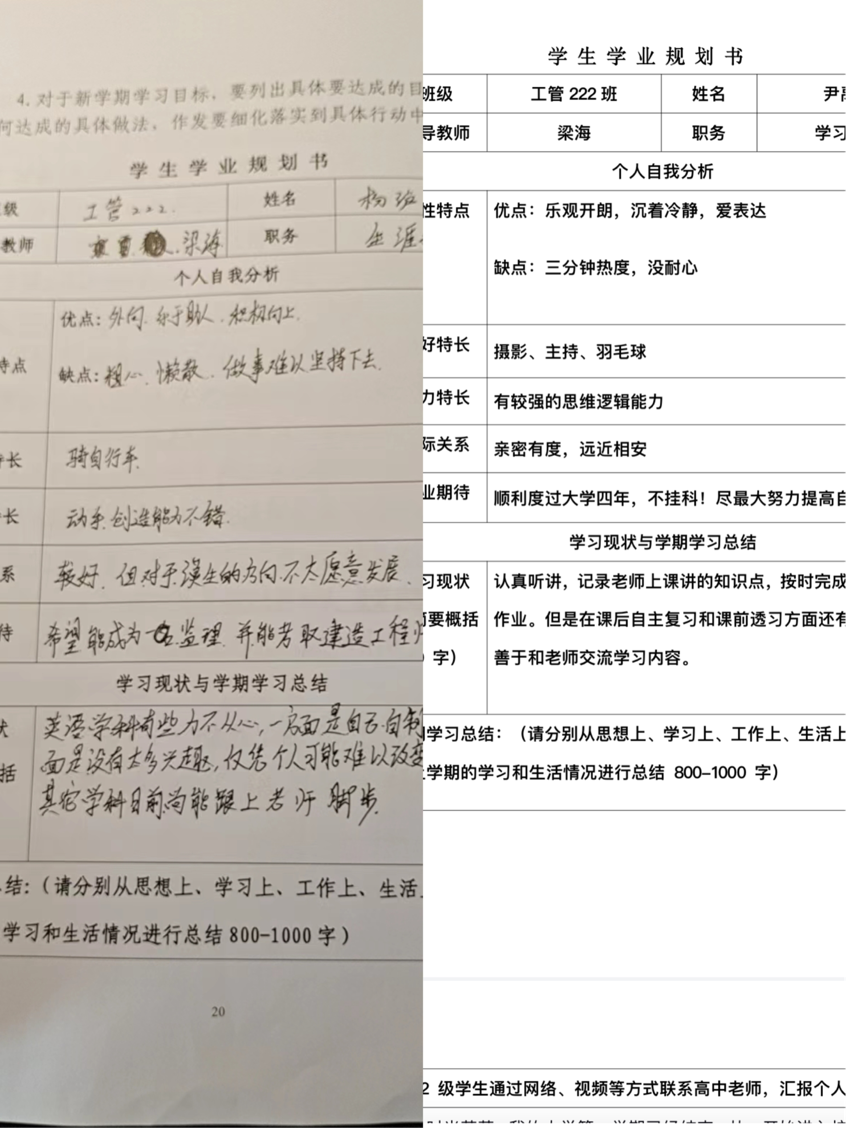 4.对于新学期学习目标，要列出具体要达成的目
何达成的具体做法，作发要细化落实到具体行动中
学生学业规划书
级 工管222. 姓名 杨
教师 梁海 职务 生涯
个人自我分析
特点 优点：外向、乐于助人、积极向上.
缺点：粗心、懒散、做事难以坚持下去.
长 骑自行车.
长 动手创造能力不错.
系 较好、但对于谋生的方向不太愿意发展.
待 希望能成为一名监理.并能考取建造工程师
学习现状与学期学习总结
状 英语学科有些力不从心,一方面是自己自制
面是没有太多兴趣,仅凭个人可能难以改变
括 其它学科目前尚能跟上老师脚步.
结:（请分别从思想上、学习上、工作上、生活
学习和生活情况进行总结800-1000字）
20
学生学业规划书
班级 工管 222 班 姓名 尹
导教师 梁海 职务 学习
个人自我分析
性特点 优点：乐观开朗，沉着冷静，爱表达
缺点：三分钟热度，没耐心
好特长 摄影、主持、羽毛球
力特长 有较强的思维逻辑能力
际关系 亲密有度，远近相安
业期待 顺利度过大学四年，不挂科！尽最大努力提高自
学习现状与学期学习总结
习现状 认真听讲，记录老师上课讲的知识点，按时完成
要概括 作业。但是在课后自主复习和课前透习方面还有
字） 善于和老师交流学习内容。
学习总结：（请分别从思想上、学习上、工作上、生活上
学期的学习和生活情况进行总结 800-1000 字）
2 级学生通过网络、视频等方式联系高中老师，汇报个人